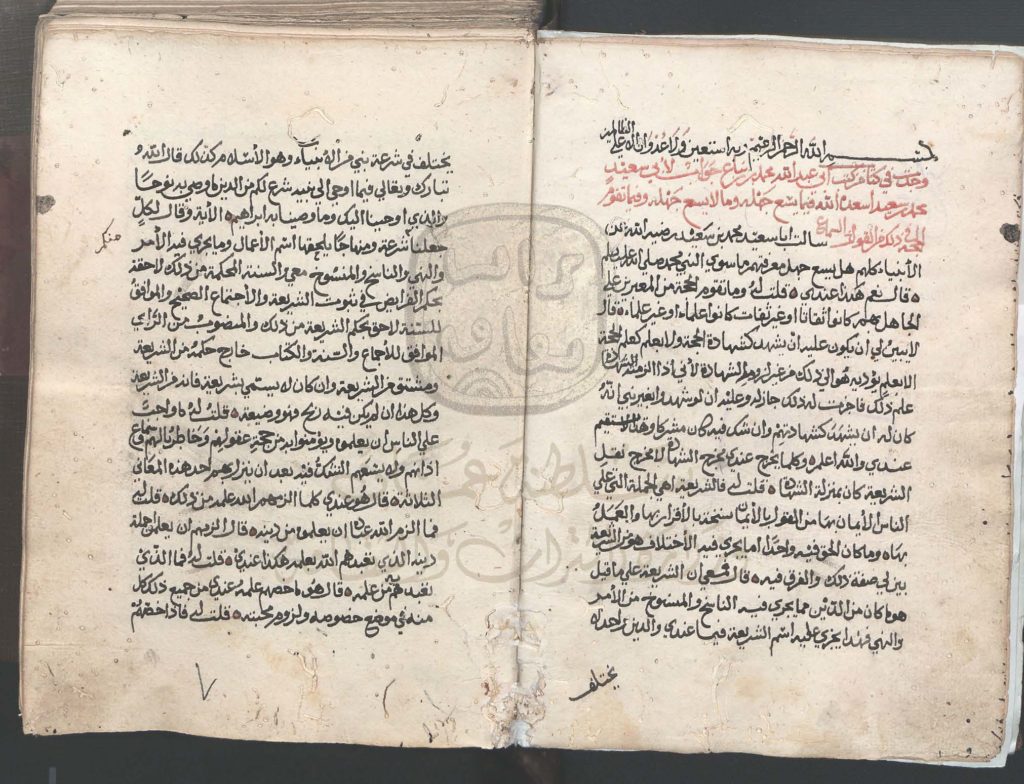 بسم الله الرحمن الرحيم وبه استعين ولا عدوان الا على الظالمين
وجدت في كتاب من كتب ابي عبد الله محمد بن جوابات لابي سعيد
محمد بن سعيد اسعده الله فيما يسع جهله وما لا يسع جهله وفيما تقوم
الحجة في ذلك من القول او السماع سالت ابا سعيد محمد بن سعيد رضيه الله عن
الأنبياء كلهم هل يسع جهل معرفتهم ما سوى النبي محمد صلى الله عليه وسلم
قال نعم هكذا عندي قلت له وما تقوم الحجة من المعبرين على
الجاهل بهم كانوا ثقاتا او غير ثقات كانوا علماء او غير علماء قال
لا يبين لي ان يكون عليه ان يشهد كشهادة الحجة ولا يعلم كعلم الحجة
الا بعلم يؤديه هو الى ذلك من غير لزوم الشهادة لأني اذا الزمته الشهادة
علم ذلك فاجزت له ذلك جاز له وعليه ان لو شهد واحد بنبي انه
كان له ان يشهد كشهادتهم وان شك فيه كان مشركا وهذا يستقيم
عندي والله اعلم وكلما يخرج عندي مخرج الشهادة لا مخرج نقل
الشريعة كان بمنزلة الشهادة قلت له فالشريعة اهي الجملة التي على
الناس الأيمان بها من القول بالأيمان بها والعمل
بها وما كان الحق فيه واحدا ام ما يجري فيه الأختلاف هو من الشريعة
بين لي صفة ذلك والفرق فيه قال معي ان الشريعة على ما قيل
هو ما كان من الدين مما يجري فيه الناسخ والمنسوخ من الأمر
والنهي فهذا يجري عليه اسم الشريعة فيما عندي والدين واحد لا
يختلف
يختلف في شرعة نبي من الأنبياء وهو الأسلام من كتاب الله قال الله
تبارك وتعالى فيما اوحى الى نبيه شرع لكم من الدين ما وصى به نوحا
والذي اوحينا اليك وما وصينا به ابراهيم الأية وقال لكل
جعلنا شرعة ومنهاجا يلحقها اسم الأعمال وما يجري فيه الأمر
منكم
والنهي والناسخ والمنسوخ معي والسنة المحكمة من ذلك لاحقة
بحكم الفرايض في ثبوت الشريعة والأجتماع الصحيح والموافق
للسنة لاحق بحكم الشريعة من ذلك والمنصوب من الراي
الموافق للأجماع والسنة والكتاب خارج حكمه من الشريعة
ومشتق من الشريعة وان كان لا يسمى شريعة فانه من الشريعة
وكل هذا ان لم يكن فيه فهو وضيعة قلت له ما واجب
على الناس ان يعلموه ويؤمنوا به من حجة عقولهم وخاطر بالهم وسماع
اذانهم ولا يسعهم الشك فيه بعد ان ينزل بهم احد هذه المعاني
الثلاثة قال هو عندي كلما الزمهم الله علمه من ذلك قلت له
فما الزم الله عباده ان يعلموه من دينه قال الزمهم ان يعلموا جملة
دينه الذي تعبدهم الله بعلمه هكذا عندي قلت له فما الذي
تعبدهم به من علمه قال هو ما خصه علمه عندي من جميع ذلك كل
منه في موضع خصوصه ولزوم محنته قلت له فاذا خصهم